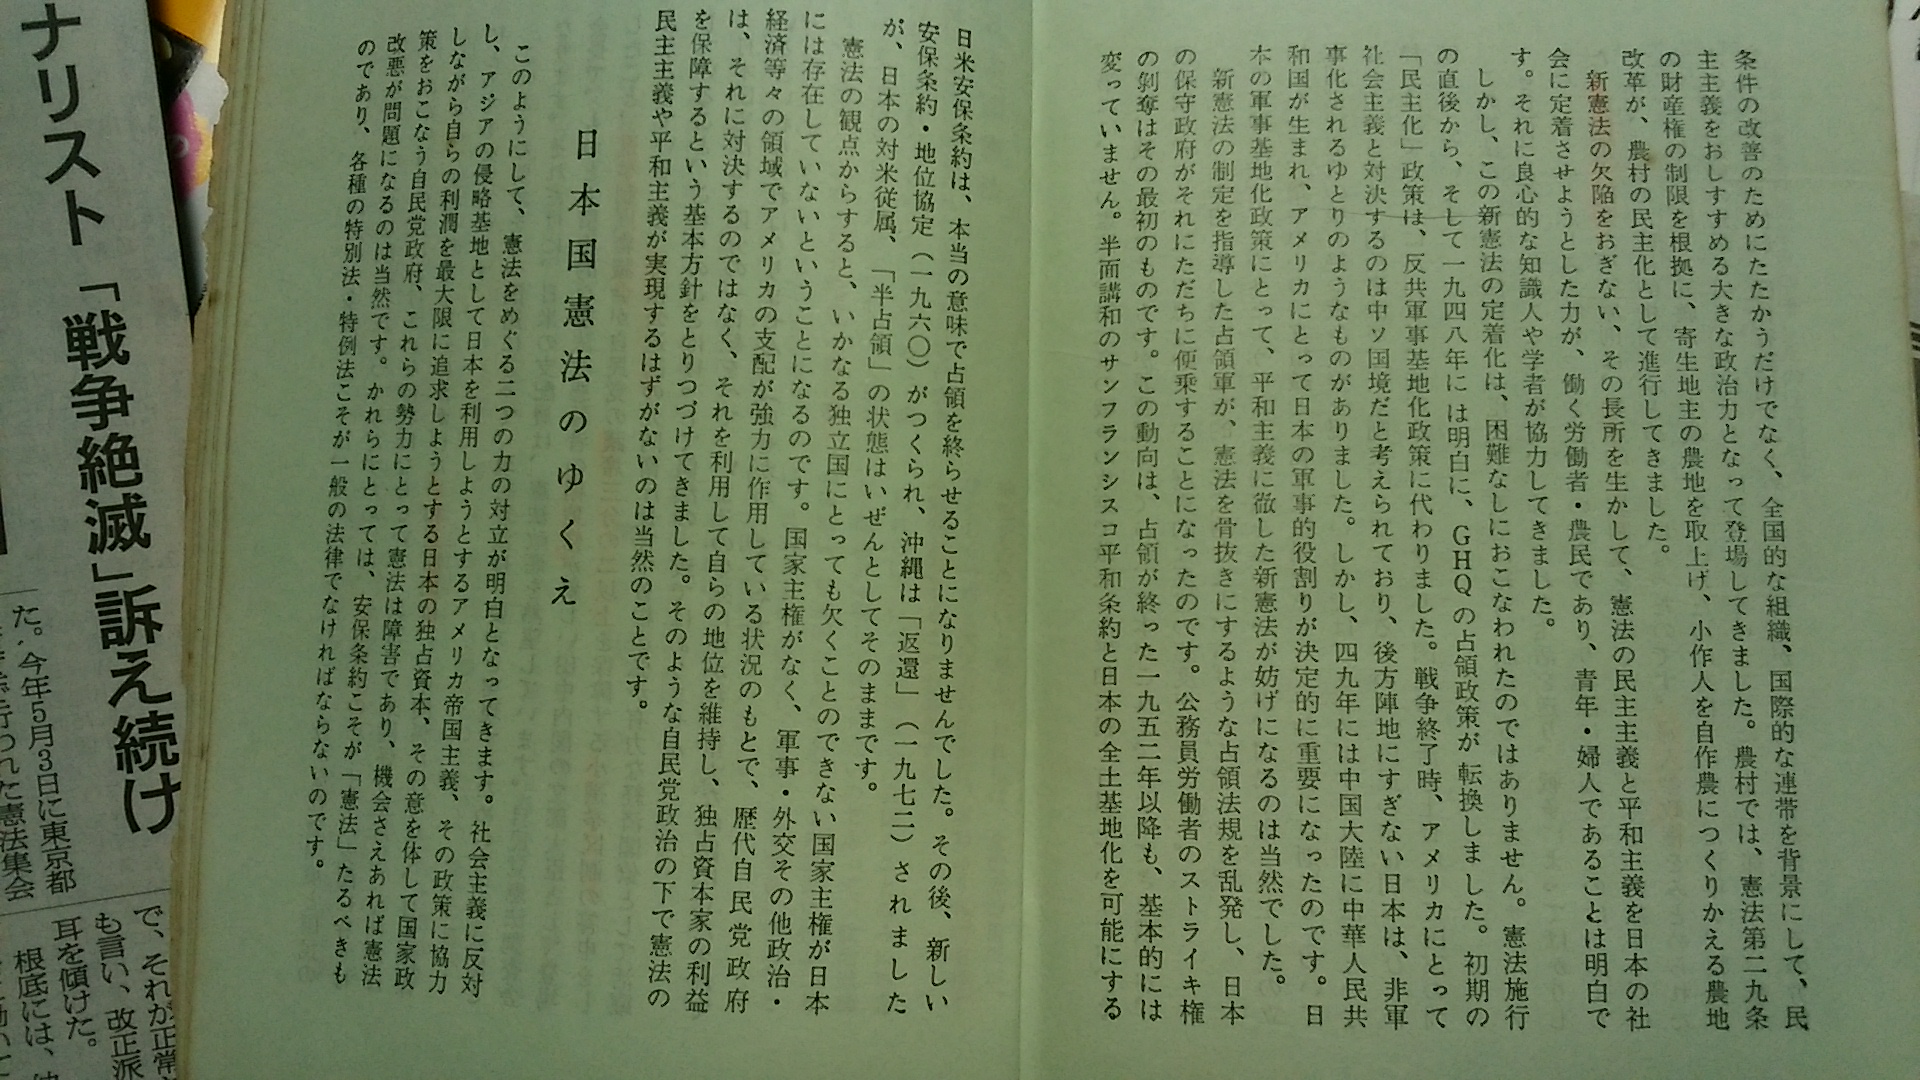 条件の改善のためにたたかうだけでなく、全国的な組織、国際的な連帯を背景にして、民
主主義をおしすすめる大きな政治力となって登場してきました。農村では、憲法第二九条
の財産権の制限を根拠に、寄生地主の農地を取上げ、小作人を自作農につくりかえる農地
改革が、農村の民主化として進行してきました。
新憲法の欠陥をおぎない、その長所を生かして、憲法の民主主義と平和主義を日本の社
会に定着させようとした力が、働く労働者・農民であり、青年・婦人であることは明白で
す。それに良心的な知識人や学者が協力してきました。
しかし、この新憲法の定着化は、困難なしにおこなわれたのではありません。憲法施行
の直後から、そして一九四八年には明白に、GHQの占領政策が転換しました。初期の
「民主化」政策は、反共軍事基地化政策に代わりました。戦争終了時、アメリカにとって
社会主義と対決するのは中ソ国境だと考えられており、後方陣地にすぎない日本は、非軍
事化されるゆとりのようなものがありました。しかし、四九年には中国大陸に中華人民共
和国が生まれ、アメリカにとって日本の軍事的役割りが決定的に重要になったのです。日
本の軍事基地化政策にとって、平和主義に徹した新憲法が妨げになるのは当然でした。
新憲法の制定を指導した占領軍が、憲法を骨抜きにするような占領法規を乱発し、日本
の保守政府がそれにただちに便乗することになったのです。公務員労働者のストライキ権
の剝奪はその最初のものです。この動向は、占領が終った一九五二年以降も、基本的には
変っていません。半面講和のサンフランシスコ平和条約と日本の全土基地化を可能にする
日米安保条約は、本当の意味で占領を終らせることになりませんでした。その後、新しい
安保条約・地位協定（一九六〇）がつくられ、沖縄は「返還」（一九七二）されました
が、日本の対米従属、「半占領」の状態はいぜんとしてそのままです。
憲法の観点からすると、いかなる独立国にとっても欠くことのできない国家主権が日本
には存在していないということになるのです。国家主権がなく、軍事・外交その他政治・
経済等々の領域でアメリカの支配が強力に作用している状況のもとで、歴代自民党政府
は、それに対決するのではなく、それを利用して自らの地位を維持し、独占資本家の利益
を保障するという基本方針をとりつづけてきました。そのような自民党政治の下で憲法の
民主主義や平和主義が実現するはずがないのは当然のことです。
日本国憲法のゆくえ
このようにして、憲法をめぐる二つの力の対立が明白となってきます。社会主義に反対
し、アジアの侵略基地として日本を利用しようとするアメリカ帝国主義、その政策に協力
しながら自らの利潤を最大限に追求しようとする日本の独占資本、その意を体して国家政
策をおこなう自民党政府、これらの勢力にとって憲法は障害であり、機会さえあれば憲法
改悪が問題になるのは当然です。かれらにとっては、安保条約こそが「憲法」たるべきも
のであり、各種の特別法・特例法こそが一般の法律でなければならないのです。
ナリスト「戦争絶滅」訴え続け
た。今年5月3日に東京都
行われた憲法集会
で、それが正常
も言い、改正派
耳を傾けた。
根底には、